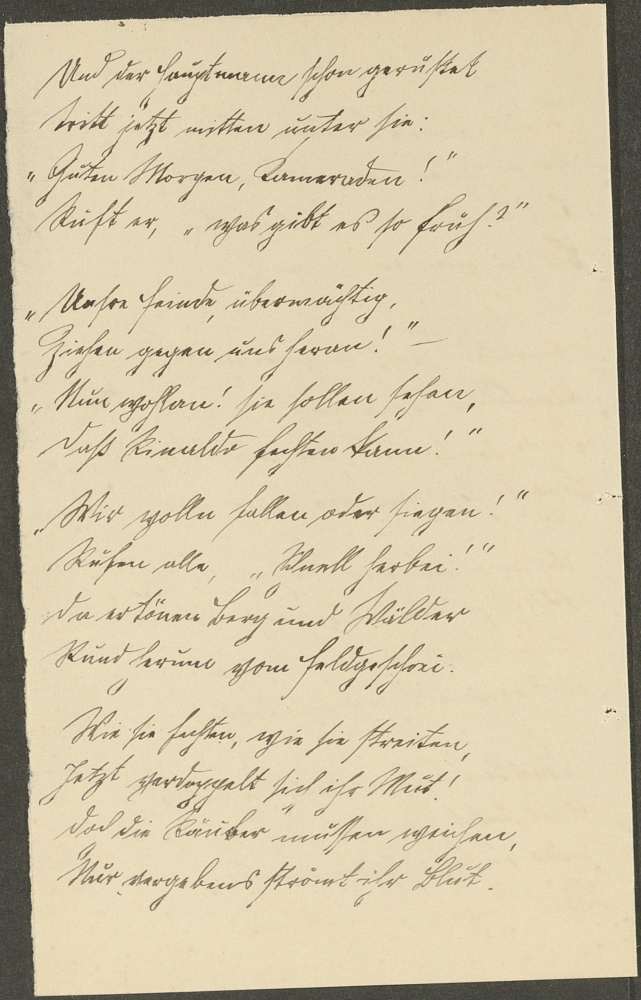 Und der Hauptmann schon gerüstet
tritt jetzt mitten unter sie:
„Guten Morgen, Kameraden!"
Ruft er, „was gibt es so früh?"
„Unsre Feinde, übermächtig,
Ziehen gegen uns heran!" –
„Nun wohlan! sie sollen sehen,
Daß Rinaldo fechten kann!"
„Wir wolln fallen oder siegen!"
Rufen alle, „Schnell herbei!"
Da ertönen Berg und Wälder
Rund herum vom Feldgeschrei.
Wie sie fechten, wie sie streiten,
Jetzt verdoppelt sich ihr Mut!
Doch die Räuber müssen weichen,
Nur vergebens strömt ihr Blut.